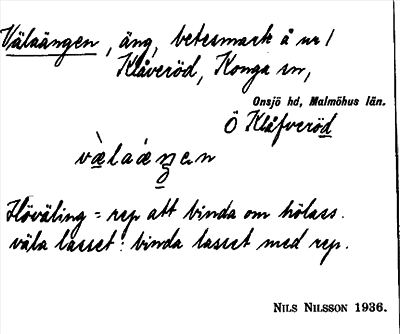 Välaängen, äng, betesmark å nr 1
Klåveröd, Konga sn,
Onsjö hd, Malmöhus län.
Ö Klåfveröd
væ̀laáeŋen
Höväling = rep att binda om hölass.
väla lasset: binda lasset med rep.
NILS NILSSON 1936.